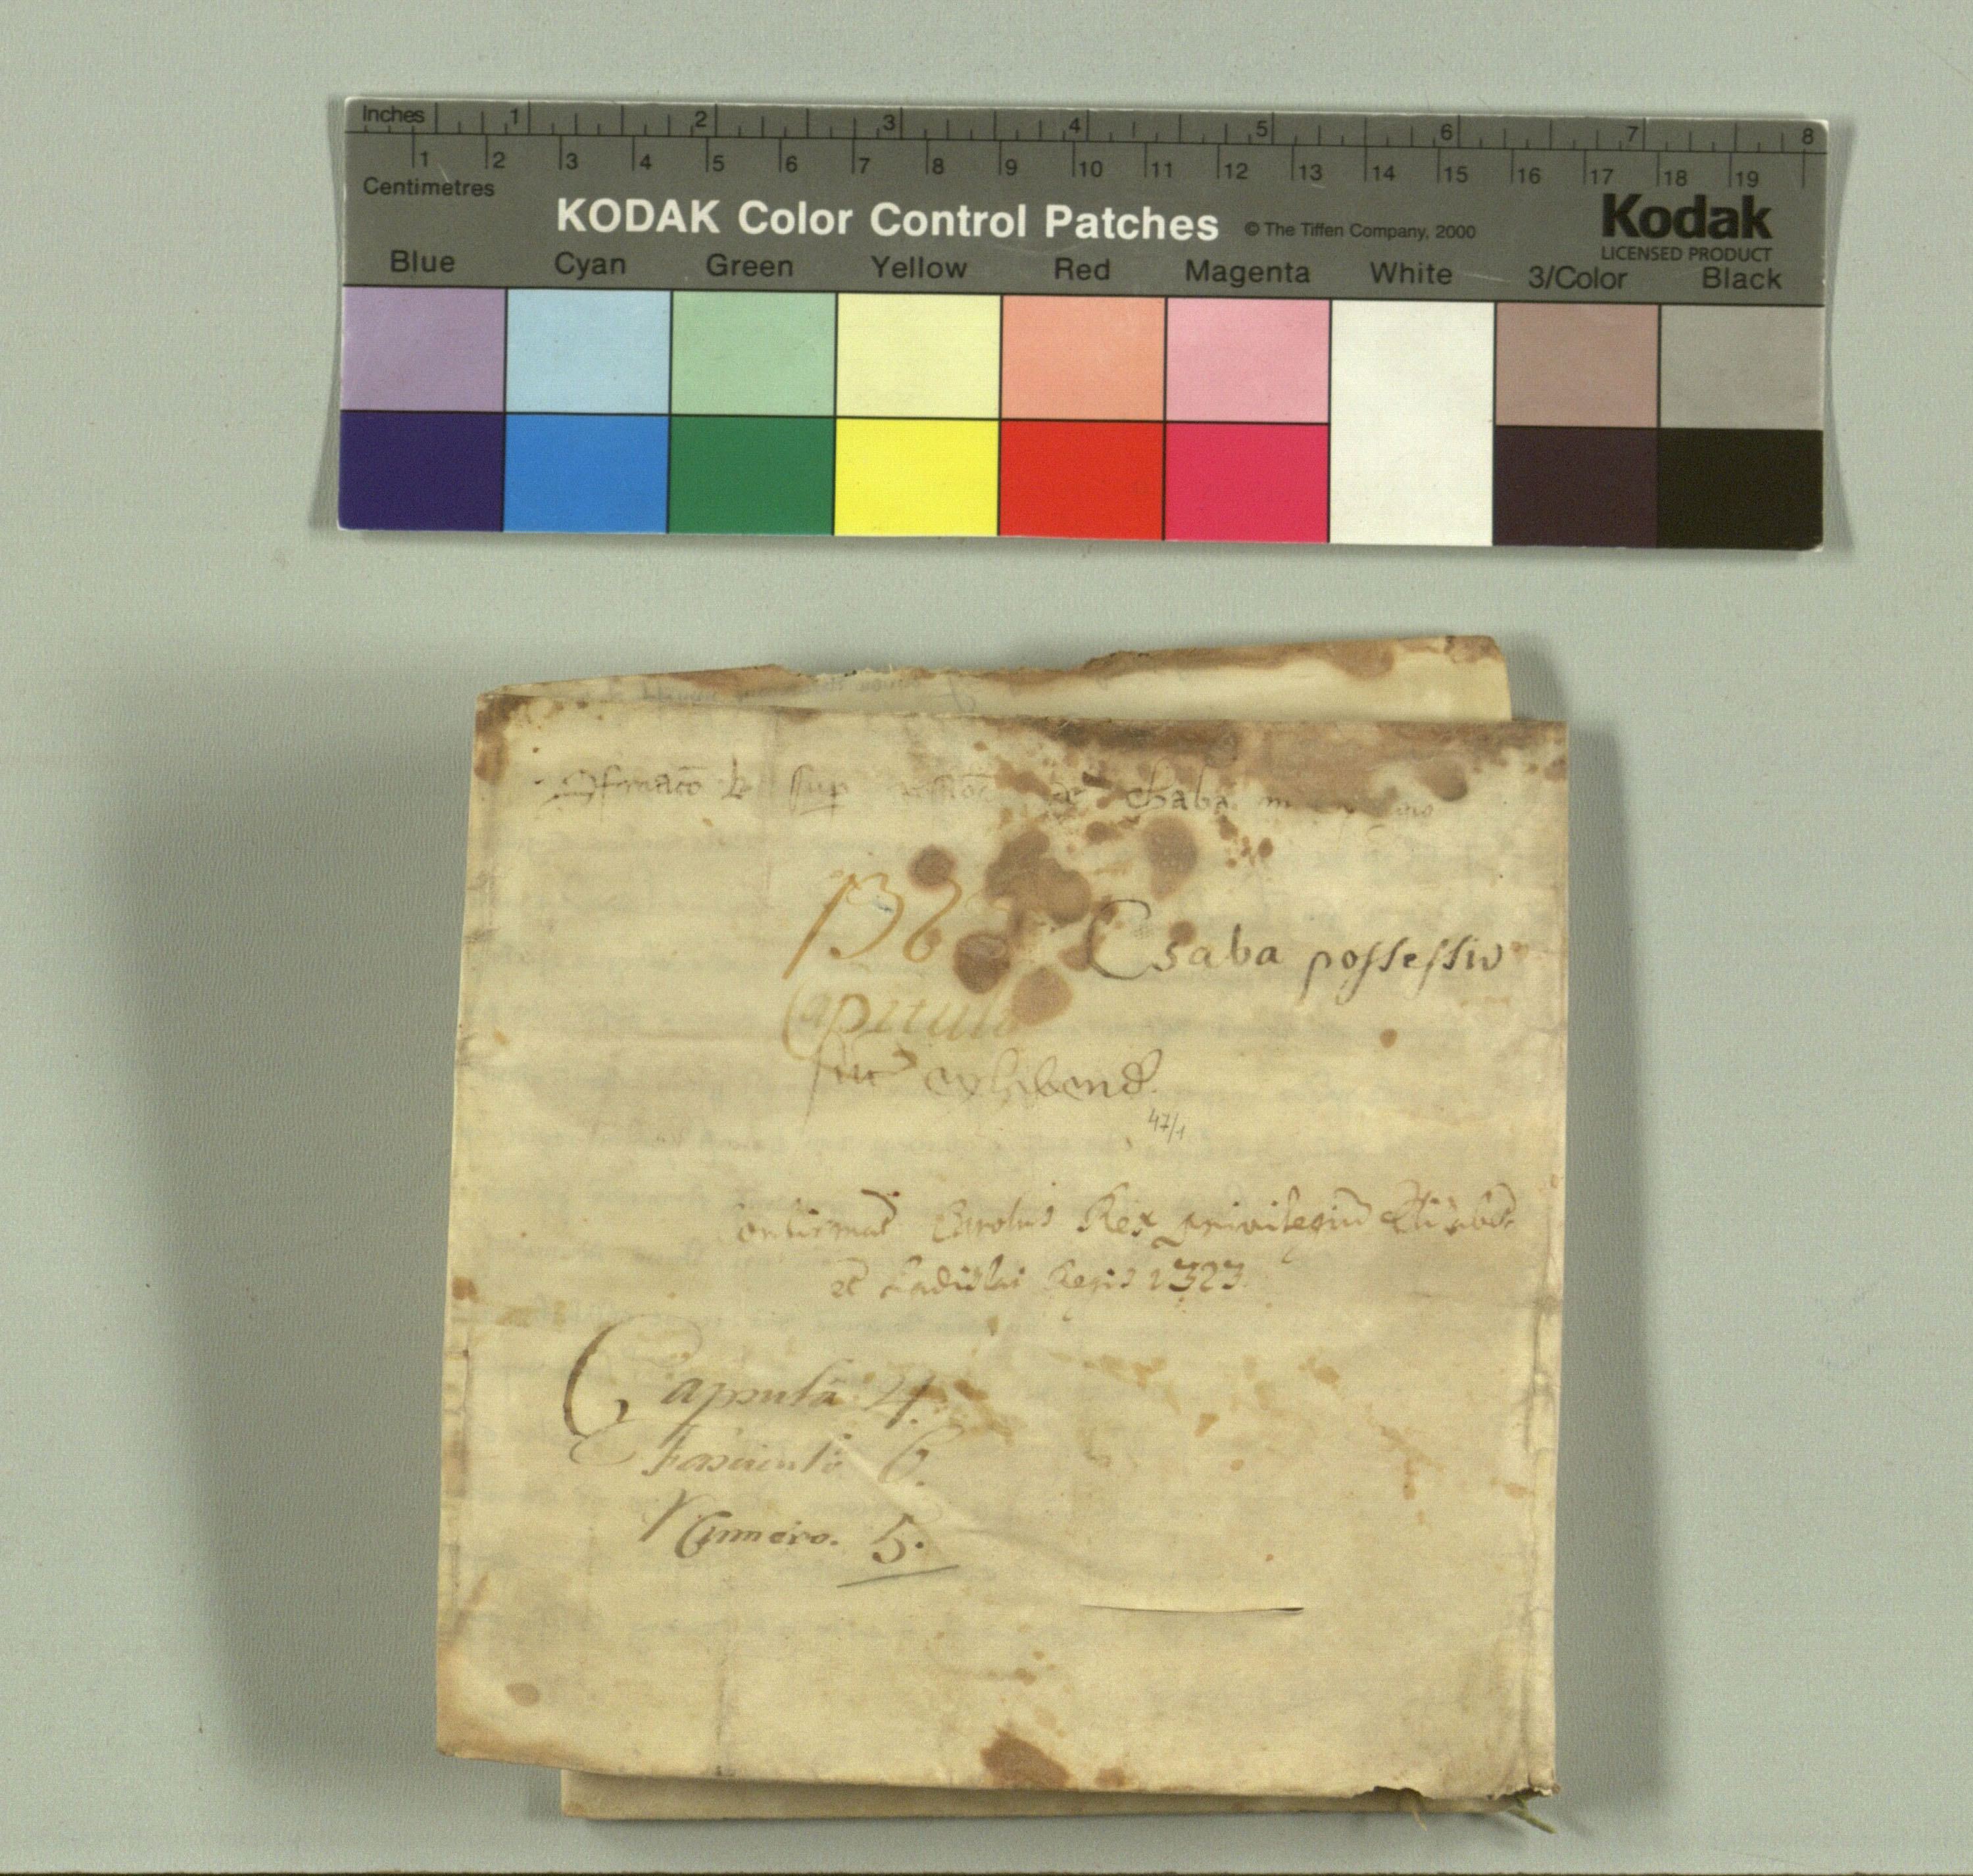 Inches 1 2 3 4 5 6 7 8
1 2 3 4 5 6 7 8 9 10 11 12 13 14 15 16 17 18 19
Centimetres
KODAK Color Control Patches © The Tiffen Company, 2000 Kodak
LICENSED PRODUCT
Blue Cyan Green Yellow Red Magenta White 3/Color Black
sup de Chaba
Csaba possessio
Capitula
47/1
Confirmat Carolus Rex privilegiu Elizabet
et Ladislai Regis 1323.
Capsula 4.
Fasciculo 6.
Numero. 5.